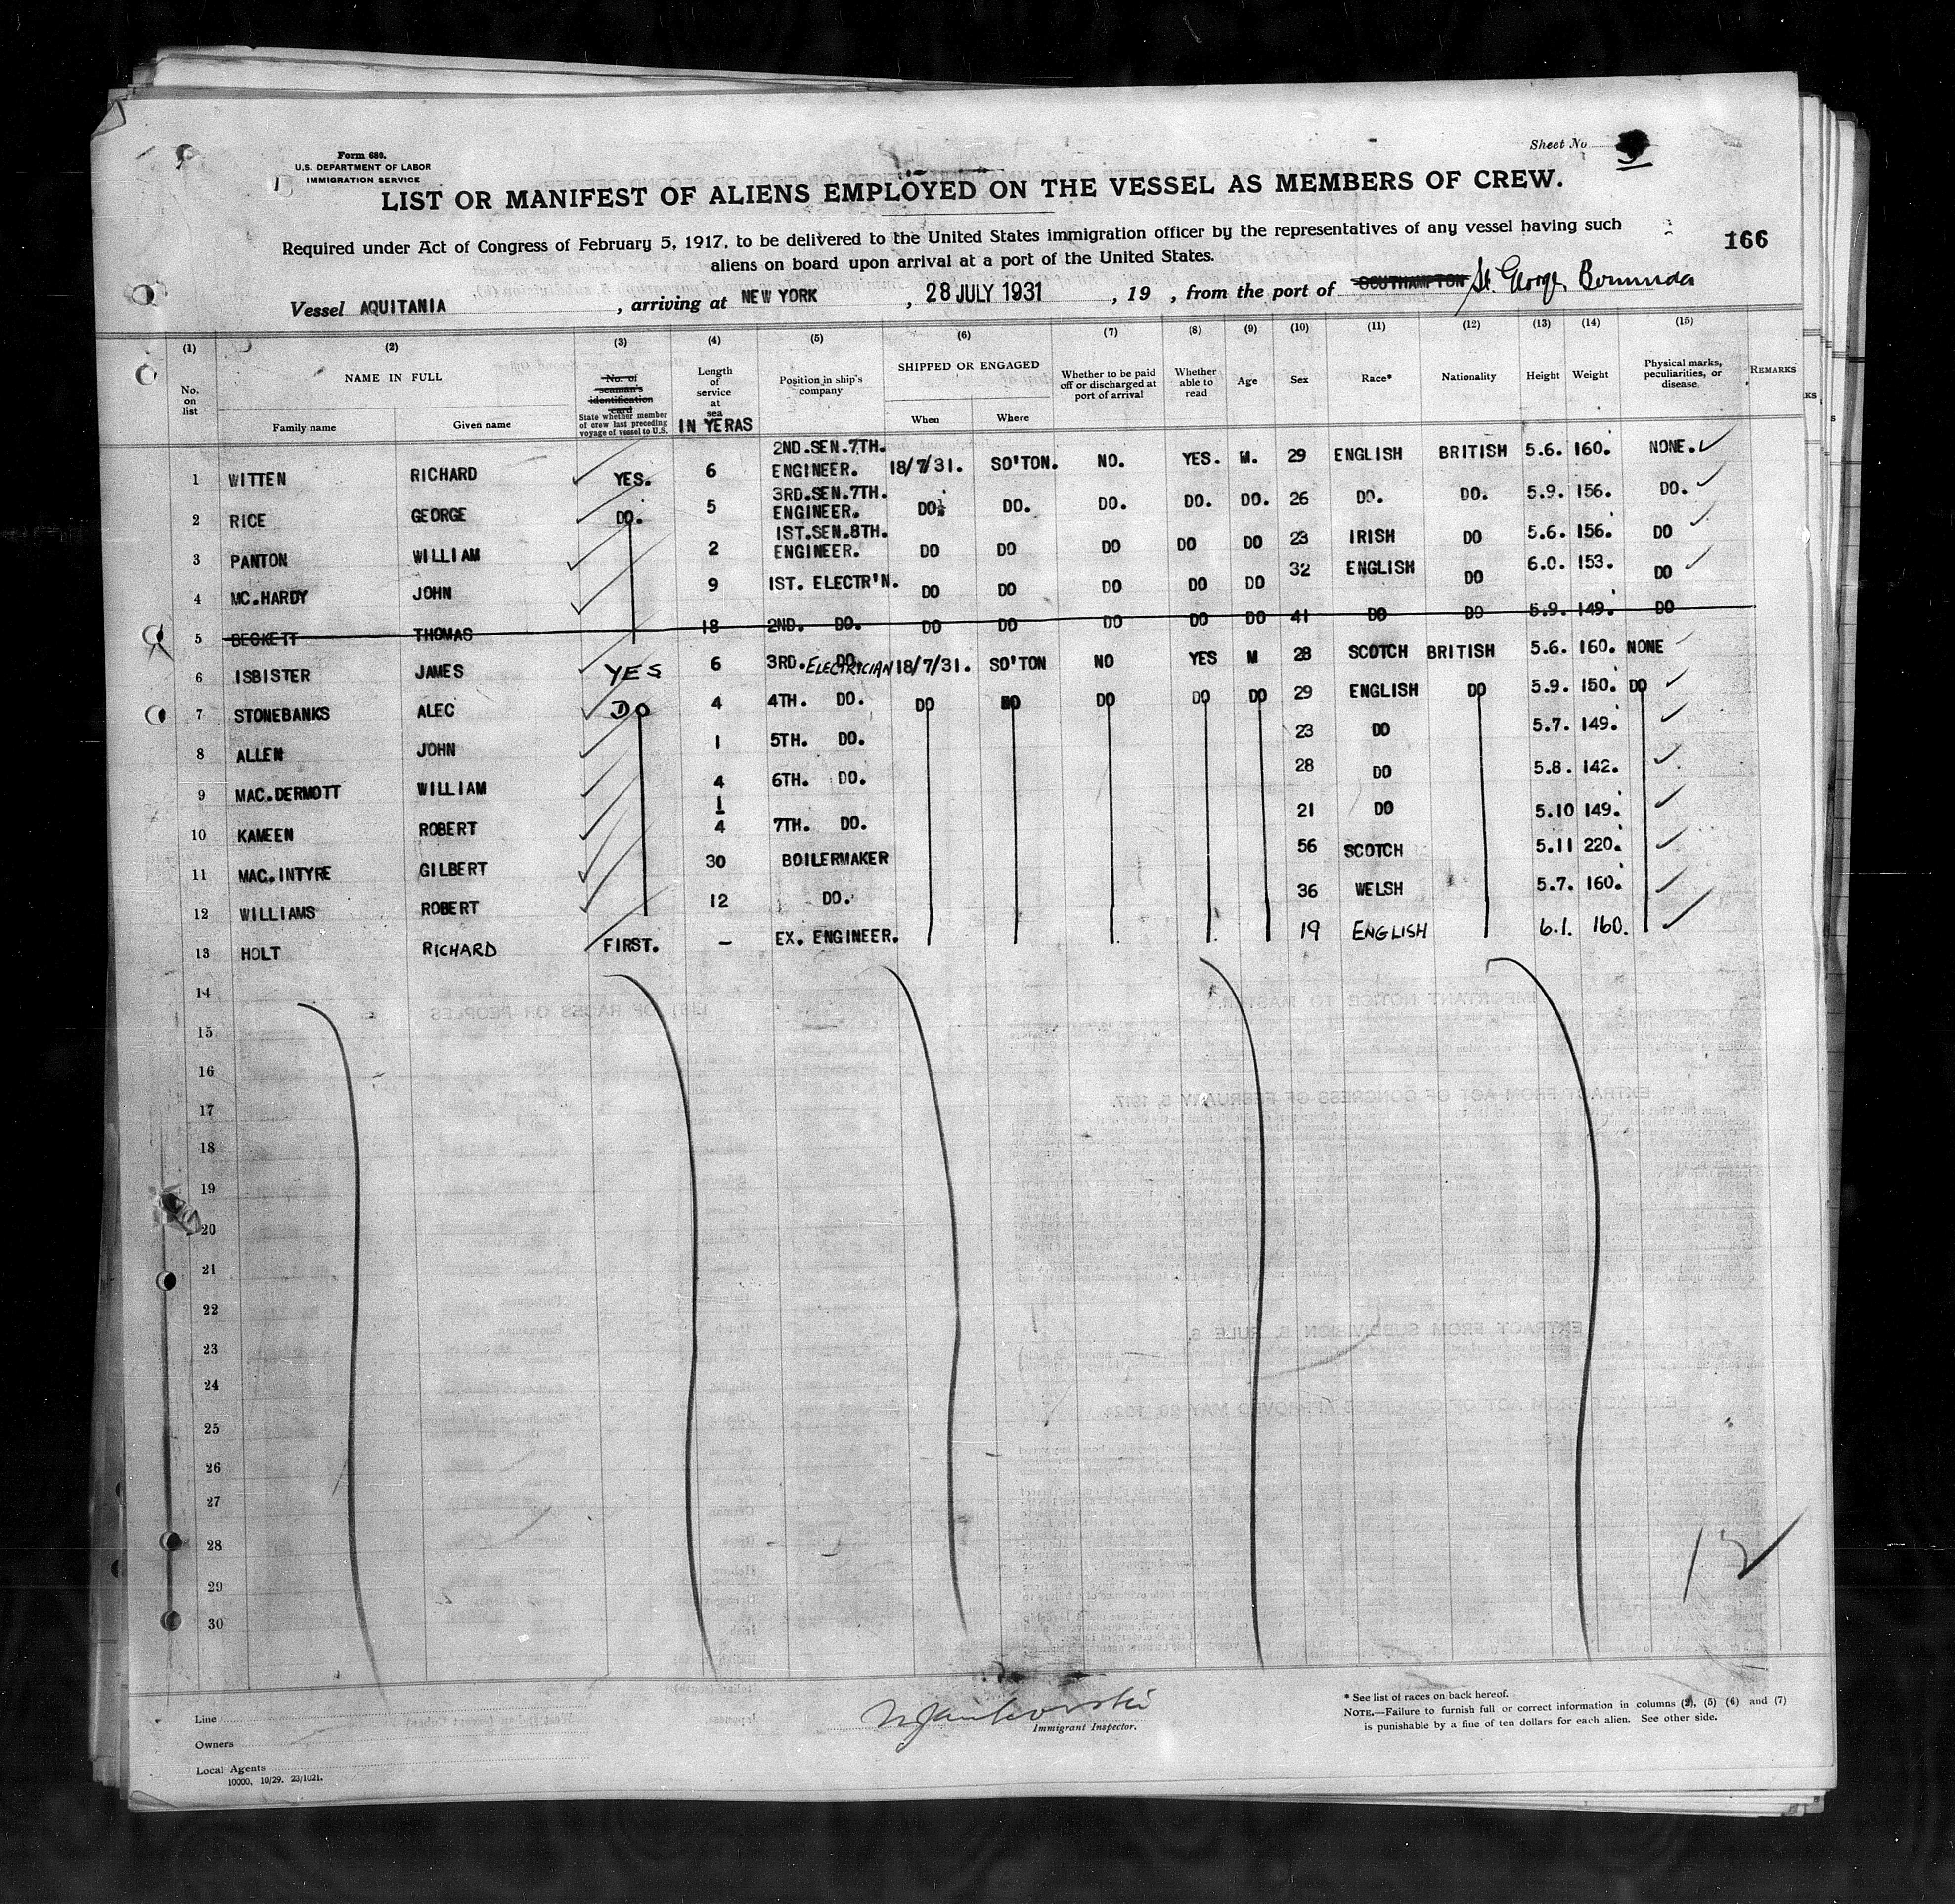 Form 689.
U.S. DEPARTMENT OF LABOR
IMMIGRATION SERVICE
Sheet No
LIST OR MANIFEST OF ALIENS EMPLOYED ON THE VESSEL AS MEMBERS OF CREW.
Required under Act of Congress of February 5, 1917, to be delivered to the United States immigration officer by the representatives of any vessel having such
aliens on board upon arrival at a port of the United States.
166
Vessel AQUITANIA , arriving at NEW YORK , 28 JULY 1931 , 19 , from the port of SOUTHAMPTON St. George, Bermuda
(1) (2) (3) (4) (5) (6) (7) (8) (9) (10) (11) (12) (13) (14) (15)
No. on list NAME IN FULL Family name Given name No. of seaman's identification card State whether member of crew last preceding voyage of vessel to U.S. Length of service at sea IN YERAS Position in ship's company SHIPPED OR ENGAGED When Where Whether to be paid off or discharged at port of arrival Whether able to read Age Sex Race* Nationality Height Weight Physical marks, peculiarities, or disease. REMARKS
1 WITTEN RICHARD YES. 6 2ND.SEN.7TH. ENGINEER. 18/7/31. SO'TON. NO. YES. M. 29 ENGLISH BRITISH 5.6. 160. NONE.
2 RICE GEORGE DO. 5 3RD.SEN.7TH. ENGINEER. DO. DO. DO. DO. DO. 26 DO. DO. 5.9. 156. DO.
3 PANTON WILLIAM 2 1ST.SEN.8TH. ENGINEER. DO DO DO DO DO 23 IRISH DO 5.6. 156. DO
4 MC.HARDY JOHN 9 1ST. ELECTR'N. DO DO DO DO DO 32 ENGLISH DO 6.0. 153. DO
5 BECKETT THOMAS 18 2ND. DO. DO DO DO DO DO 41 DO DO 5.9. 149. DO
6 ISBISTER JAMES YES 6 3RD. DO. ELECTRICIAN 18/7/31. SO'TON NO YES M 28 SCOTCH BRITISH 5.6. 160. NONE
7 STONEBANKS ALEC DO 4 4TH. DO. DO DO DO DO DO 29 ENGLISH DO 5.9. 150. DO
8 ALLEN JOHN 1 5TH. DO. 23 DO 5.7. 149.
9 MAC.DERMOTT WILLIAM 4 6TH. DO. 28 DO 5.8. 142.
10 KAMEEN ROBERT 1 4 7TH. DO. 21 DO 5.10 149.
11 MAC.INTYRE GILBERT 30 BOILERMAKER 56 SCOTCH 5.11 220.
12 WILLIAMS ROBERT 12 DO. 36 WELSH 5.7. 160.
13 HOLT RICHARD FIRST. – EX. ENGINEER. 19 ENGLISH 6.1. 160.
14
15
16
17
18
19
20
21
22
23
24
25
26
27
28
29
30
12
Line
Owners
Local Agents
10000, 10/29. 23/1021.
Immigrant Inspector.
* See list of races on back hereof.
NOTE.—Failure to furnish full or correct information in columns (2), (5) (6) and (7)
is punishable by a fine of ten dollars for each alien. See other side.